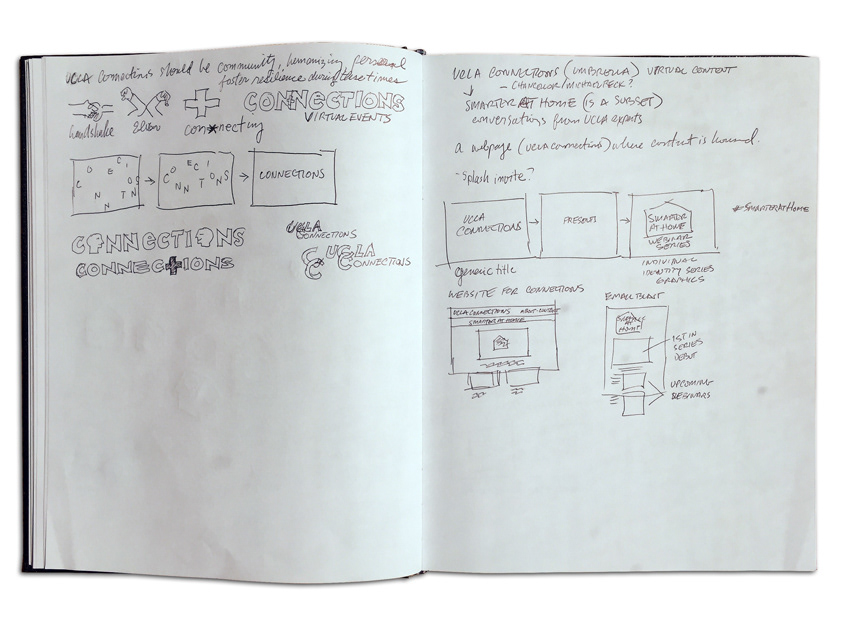 UCLA Connections should be community, humanizing personal
foster resilience during these times
handshake
elbow
connecting
CONNECTIONS
VIRTUAL EVENTS
C O N N E C T I O N S
C O N N E C T I O N S
CONNECTIONS
CONNECTIONS
CONNECTIONS
UCLA
CONNECTIONS
UCLA
CONNECTIONS
UCLA CONNECTIONS (UMBRELLA) VIRTUAL CONTENT
– CHANCELLOR/MICHAEL BECK?
SMARTER AT HOME (IS A SUBSET)
conversations from UCLA experts
a webpage (ucla connections) where content is housed.
- Splash invite?
UCLA
CONNECTIONS
PRESENTS
SMARTER
AT HOME
WEBINAR
SERIES
#SMARTERATHOME
generic title
INDIVIDUAL
IDENTITY SERIES
GRAPHICS
WEBSITE FOR CONNECTIONS
UCLA CONNECTIONS ABOUT CONTENT
SMARTER AT HOME
EMAIL BLAST
SMARTER
AT
HOME
1ST IN
SERIES
DEBUT
UPCOMING
WEBINARS